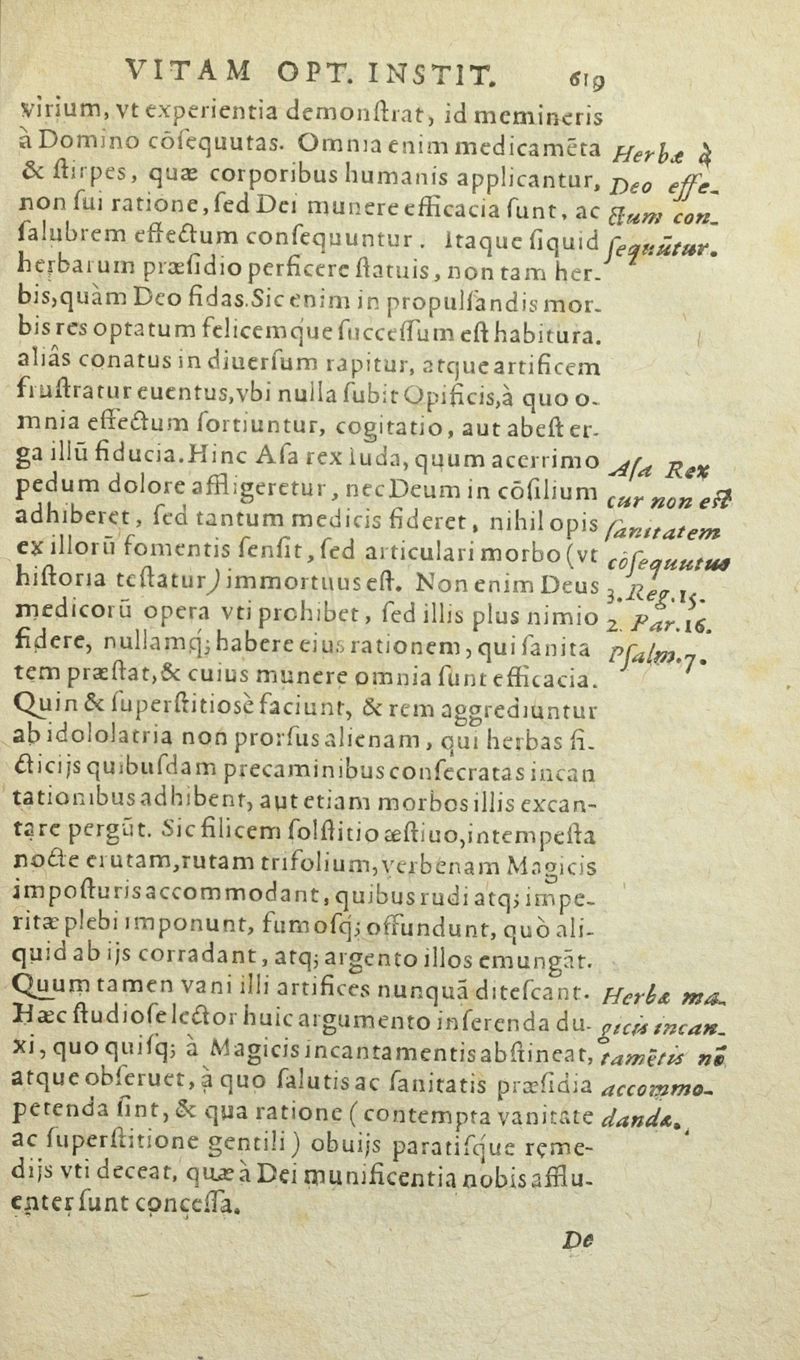 VITAM OPT. INSTIT. 619
virium, vt experientia demonſtrat, id memineris
à Domino cōſequutas. Omnia enim medicamēta
& ſtirpes, quæ corporibus humanis applicantur,
non ſui ratione, ſed Dei munere efficacia ſunt, ac
ſalubrem effectum conſequuntur. Itaque ſiquid
herbarum præſidio perficere ſtatuis, non tam her-
bis, quàm Deo fidas. Sic enim in propulſandis mor-
bis res optatum felicemque ſucceſſum eſt habitura.
aliâs conatus in diuerſum rapitur, atque artificem
fruſtratur euentus, vbi nulla ſubit Opificis, à quo o-
mnia effectum ſortiuntur, cogitatio, aut abeſt er-
ga illū fiducia. Hinc Aſa rex Iuda, quum acerrimo
pedum dolore affligeretur, nec Deum in cōſilium
adhiberet, ſed tantum medicis fideret, nihil opis
ex illorū fomentis ſenſit, ſed articulari morbo (vt
hiſtoria teſtatur) immortuus eſt. Non enim Deus
medicorū opera vti prohibet, ſed illis plus nimio
fidere, nullamq; habere eius rationem, qui ſanita
tem præſtat, & cuius munere omnia ſunt efficacia.
Quin & ſuperſtitiosè faciunt, & rem aggrediuntur
ab idololatria non prorſus alienam, qui herbas fi-
cticijs quibuſdam precaminibus conſecratas incan
tationibus adhibent, aut etiam morbos illis excan-
tare pergūt. Sic filicem ſolſtitio æſtiuo, intempeſta
nocte erutam, rutam trifolium, verbenam Magicis
impoſturis accommodant, quibus rudi atq; impe-
ritæ plebi imponunt, fumoſq; offundunt, quò ali-
quid ab ijs corradant, atq; argento illos emungāt.
Quum tamen vani illi artifices nunquā diteſcant.
Hæc ſtudioſe lector huic argumento inferenda du-
xi, quo quiſq; à Magicis incantamentis abſtineat,
atque obſeruet, à quo ſalutis ac ſanitatis præſidia
petenda ſint, & qua ratione (contempta vanitate
ac ſuperſtitione gentili) obuijs paratiſque reme-
dijs vti deceat, quæ à Dei munificentia nobis afflu-
enter ſunt conceſſa.
Herbæ à
Deo effe-
ctum con-
ſequūtur.
Aſa Rex
cur non eſt
ſanitatem
cōſequutus
3. Reg. 15.
2. Par. 16.
Pſalm. 7.
Herbæ ma-
gicis incan-
tamētis nō
accommo-
dandæ.
De